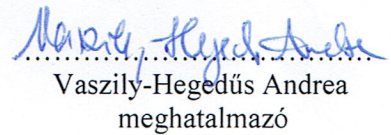 Vaszily-Hegedűs Andrea
........................................
Vaszily-Hegedűs Andrea
meghatalmazó